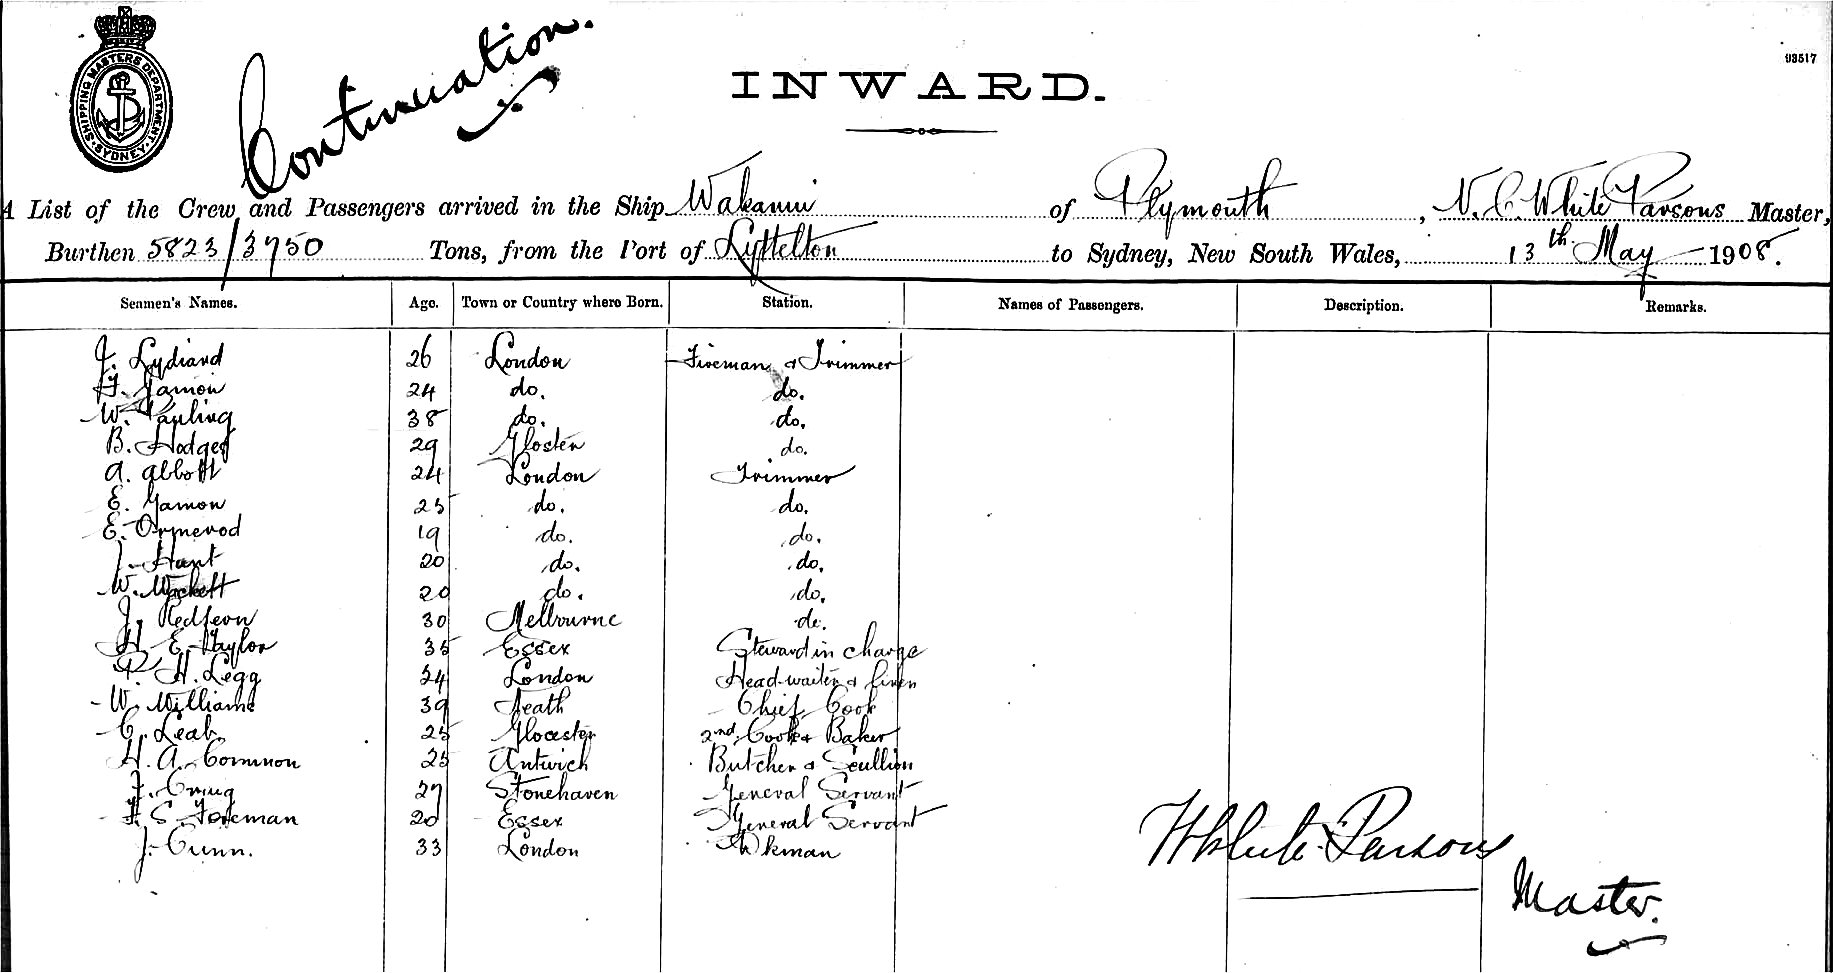 SHIPPING MASTERS DEPARTMENT
SYDNEY
Continuation.
INWARD.
93517
A List of the Crew and Passengers arrived in the Ship Wakanui of Plymouth, N. C. White Parsons Master,
Burthen 5823/3750 Tons, from the Port of Lyttelton to Sydney, New South Wales, 13th May 1908.
Seamen's Names. Age. Town or Country where Born. Station. Names of Passengers. Description. Remarks.
J. Lydiard 26 London Fireman & Trimmer
Gamon 24 do. do.
W. Pauling 38 do. do.
B. Hodges 29 Gloster do.
A. Abbott 24 London Trimmer
E. Gamon 25 do. do.
E. Ormerod 19 do. do.
J. Hant 20 do. do.
W. Wackett 20 do. do.
J. Redfern 30 Melbourne do.
H. E. Taylor 35 Essex Steward in charge
P. H. Legg 24 London Head waiter & linen
W. Williams 39 Neath Chief Cook
C. Leab 25 Glocester 2nd Cook & Baker
H. A. Common 25 Antwich Butcher & Scullion
J. Craig 27 Stonehaven General Servant
F. S. Foreman 20 Essex General Servant
J. Cunn. 33 London Wkman
White Parsons
Master.